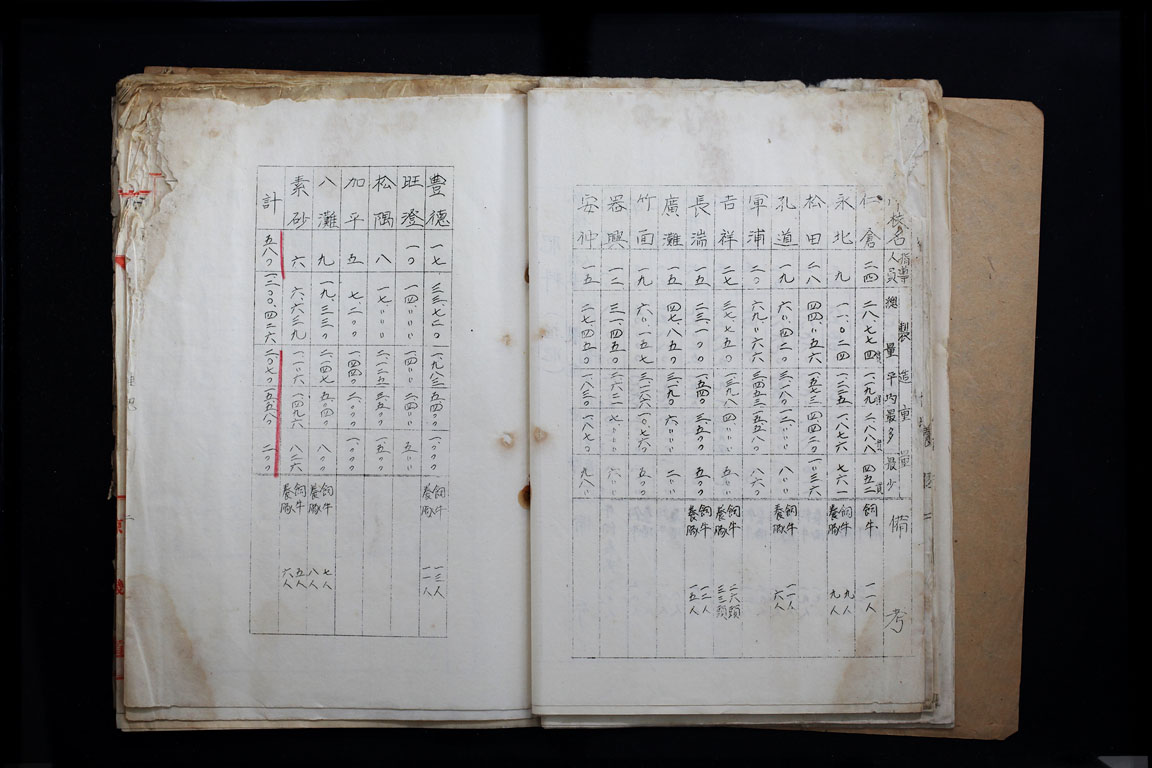 校名 指導人員 製造重量 總量 平均 最多 最少 備考
仁倉 二四 二八、七七四 一、一九九 二、八八八 四五二 飼牛 一一人
永北 九 一一、〇二四 一、二二五 一、八七六 七六一 飼牛 九人 養豚 九人
松田 二八 四四、〇五六 一、五七三 四、四二〇
孔道 一九 六〇、四二〇 三、一八〇 飼牛 一一人 養豚 六人
軍浦 二〇 六九、〇六六 三、四五三 五、五八〇 八六〇
吉祥 二七 飼牛 二六頭 養豚 三三頭
長湍 一五 二三、一〇〇 一、五四〇 三、五〇〇 五〇〇 飼牛 一二人 養豚 一五人
廣灘 一五 四七、八五〇 三、一九〇 六、〇〇〇 二、〇〇〇
竹面 一九 六〇、一五七 三、一六六 一〇、七六〇 五〇〇
器興 一二 三一、四五〇
安仲 一五 二七、四五〇 一、八三〇 一、八七〇 九八〇
豊德 一七 三三、七二〇 一、九八三 五、四〇〇 一、〇〇〇 飼牛 一三人 養豚 一一人
旺澄 一〇 一四、〇〇〇 一、四〇〇 二、四〇〇 五〇〇
松隅 八 一七、〇〇〇 二、一二五 三、五〇〇 一、五〇〇
加平 五 七、二〇〇 一、四四〇 二、〇〇〇 一、〇〇〇
八灘 九 一九、三三〇 二、一四七 五、四〇〇 八〇〇 飼牛 七人 養豚 八人
素砂 六 六、六三九 一、一〇六 一、四九六 八二六 飼牛 五人 養豚 六人
計 五八〇 一、二〇〇、四二六 二、〇七〇 一五、五八〇 二〇〇